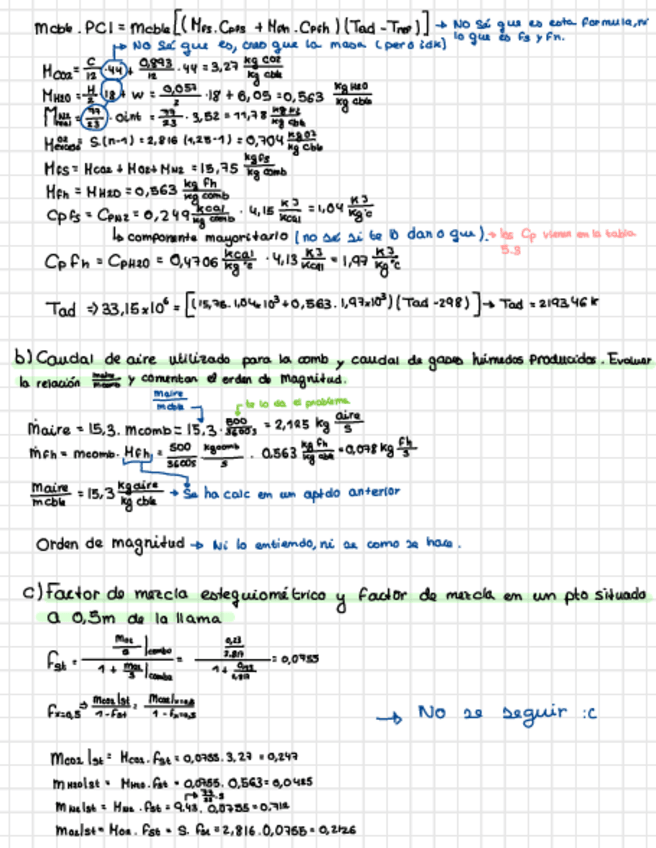 mcble . PCI = mcble [(Mfs . Cpfs + Mfh . Cpfh) (Tad - Tref)] → No sé que es esta formula, ni lo que es fs y fh.
→ No sé que es, creo que la masa (pero idk)
MCO2 = C/12 · 44 = 0,893/12 · 44 = 3,27 kg CO2/kg cble
MH2O = H/2 · 18 + W = 0,057/2 · 18 + 0,05 = 0,563 kg H2O/kg cble
MN2 real = 77/23 · Oint = 77/23 · 3,52 = 11,78 kg N2/kg cble
MO2 exceso = S(n-1) = 2,816 (1,25-1) = 0,704 kg O2/kg cble
Mfs = MCO2 + MO2 + MN2 = 15,75 kg fs/kg comb
Mfh = MH2O = 0,563 kg fh/kg comb
Cpfs = CpN2 = 0,249 kcal/kg comb · 4,15 KJ/Kcal = 1,04 KJ/Kg°C
↳ componente mayoritario (no sé si te lo dan o que). → los Cp vienen en la tabla 5.3
Cpfh = CpH2O = 0,4706 kcal/kg°C · 4,13 KJ/Kcal = 1,97 KJ/Kg°C
Tad ⇒ 33,15x10⁶ = [(15,75. 1,04x10³ + 0,563. 1,97x10³) (Tad - 298)] → Tad = 2193,46 K
b) Caudal de aire utilizado para la comb y caudal de gases húmedos producidos. Evaluar
la relación maire/mcomb y comentar el orden de magnitud.
maire/mcble
→ te lo da el problema
ṁaire = 15,3. mcomb = 15,3 · 500/3600s = 2,125 kg aire/s
ṁfh = mcomb. Mfh = 500/3600s kgcomb/s . 0,563 kg fh/kg cble = 0,078 kg fh/s
maire/mcble = 15,3 kg aire/kg cble → Se ha calc en un aptdo anterior
Orden de magnitud → Ni lo entiendo, ni se como se hace.
c) Factor de mezcla estequiométrico y factor de mezcla en un pto situado
a 0,5m de la llama
→ No se seguir :c
mCO2|st = MCO2. fst = 0,0755. 3,27 = 0,247
mH2O|st = MH2O. fst = 0,0755. 0,563 = 0,0425
mN2|st = MN2 . fst = 9,43. 0,0755 = 0,712
mO2|st = MO2. fst = S. fst = 2,816. 0,0755 = 0,2126